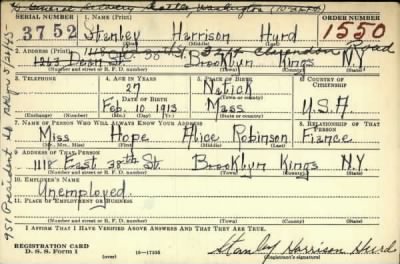 General Delivery Seattle, Washington
SERIAL NUMBER 1. NAME (Print) ORDER NUMBER
3752 Stanley Harrison Hurd 1550
(First) (Middle) (Last)
2. ADDRESS (Print) 1118 East 38 St. Clarendon Road
1263 Dean St. Brooklyn Kings N.Y.
(Number and street or R. F. D. number) (Town) (County) (State)
3. TELEPHONE 4. AGE IN YEARS 5. PLACE OF BIRTH 6. COUNTRY OF CITIZENSHIP
27 Natick
DATE OF BIRTH
Feb. 10 1913 Mass U.S.A
(Exchange) (Number) (Mo.) (Day) (Yr.) (Town or county) (State or country)
7. NAME OF PERSON WHO WILL ALWAYS KNOW YOUR ADDRESS 8. RELATIONSHIP OF THAT PERSON
Miss Hope Alice Robinson Fiance
(Mr., Mrs., Miss) (First) (Middle) (Last)
9. ADDRESS OF THAT PERSON
1118 East 38th St. Brooklyn Kings N.Y.
(Number and street or R. F. D. number) (Town) (County) (State)
10. EMPLOYER'S NAME
Unemployed.
11. PLACE OF EMPLOYMENT OR BUSINESS
(Number and street or R. F. D. number) (Town) (County) (State)
I AFFIRM THAT I HAVE VERIFIED ABOVE ANSWERS AND THAT THEY ARE TRUE.
REGISTRATION CARD
D. S. S. Form 1 (over) 16—17105 Stanley Harrison Hurd
(Registrant's signature)
951 President St.